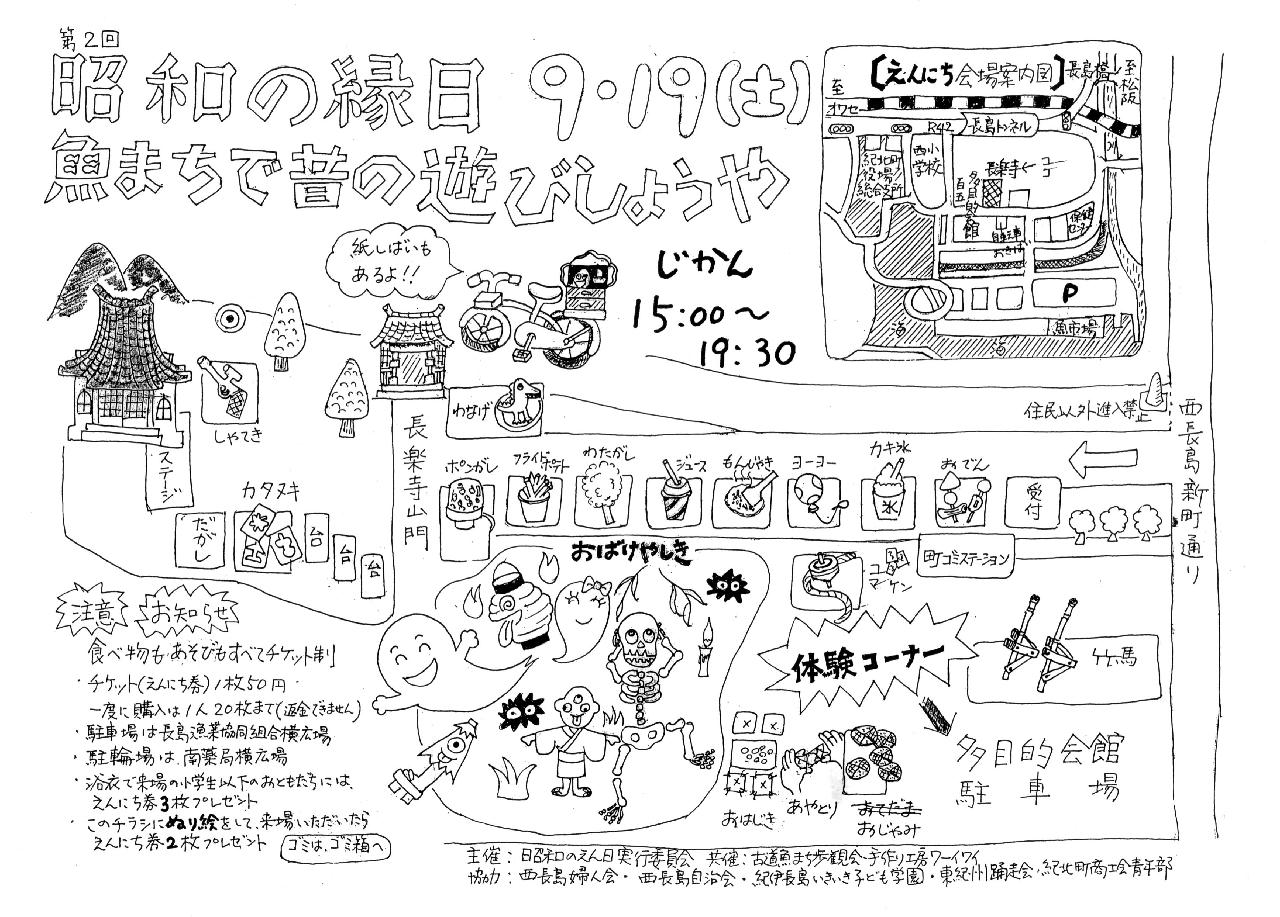 第2回
昭和の縁日 9・19(土)
魚まちで昔の遊びしょうや
じかん
15:00〜
19:30
【えんにち会場案内図】
長島橋
至松阪
至
オワセ
R42
長島トンネル
紀北町
役場
総合支所
西小
学校
長楽寺
百五
多目的会館
自転車
おきば
保健
センター
P
魚市場
海
海
紙しばいも
あるよ!!
しゃてき
ステージ
わなげ
長楽寺山門
住民以外進入禁止
西長島新町通り
ポンがし
フライドポテト
わたがし
ジュース
もんじやき
ヨーヨー
カキ氷
氷
おでん
受付
カタヌキ
だがし
台
台
台
おばけやしき
コマ
町コミステーション
体験コーナー
竹馬
多目的会館
駐車場
おはじき
あやとり
おてだま
おじゃみ
注意 お知らせ
食べ物もあそびもすべてチケット制
・チケット(えんにち券)1枚50円・
一度に購入は1人20枚まで(返金できません)
・駐車場は長島漁業協同組合横広場
・駐輪場は、南薬局横広場
・浴衣で来場の小学生以下のおともだちには、
えんにち券3枚プレゼント
・このチラシにぬり絵をして、来場いただいたら
えんにち券2枚プレゼント
ゴミは、ゴミ箱へ
主催:昭和のえん日実行委員会 共催:古道魚まち歩観会・手作り工房ワーイワイ
協力:西長島婦人会・西長島自治会・紀伊長島いきいき子ども学園・東紀州踊走会・紀北町商工会青年部